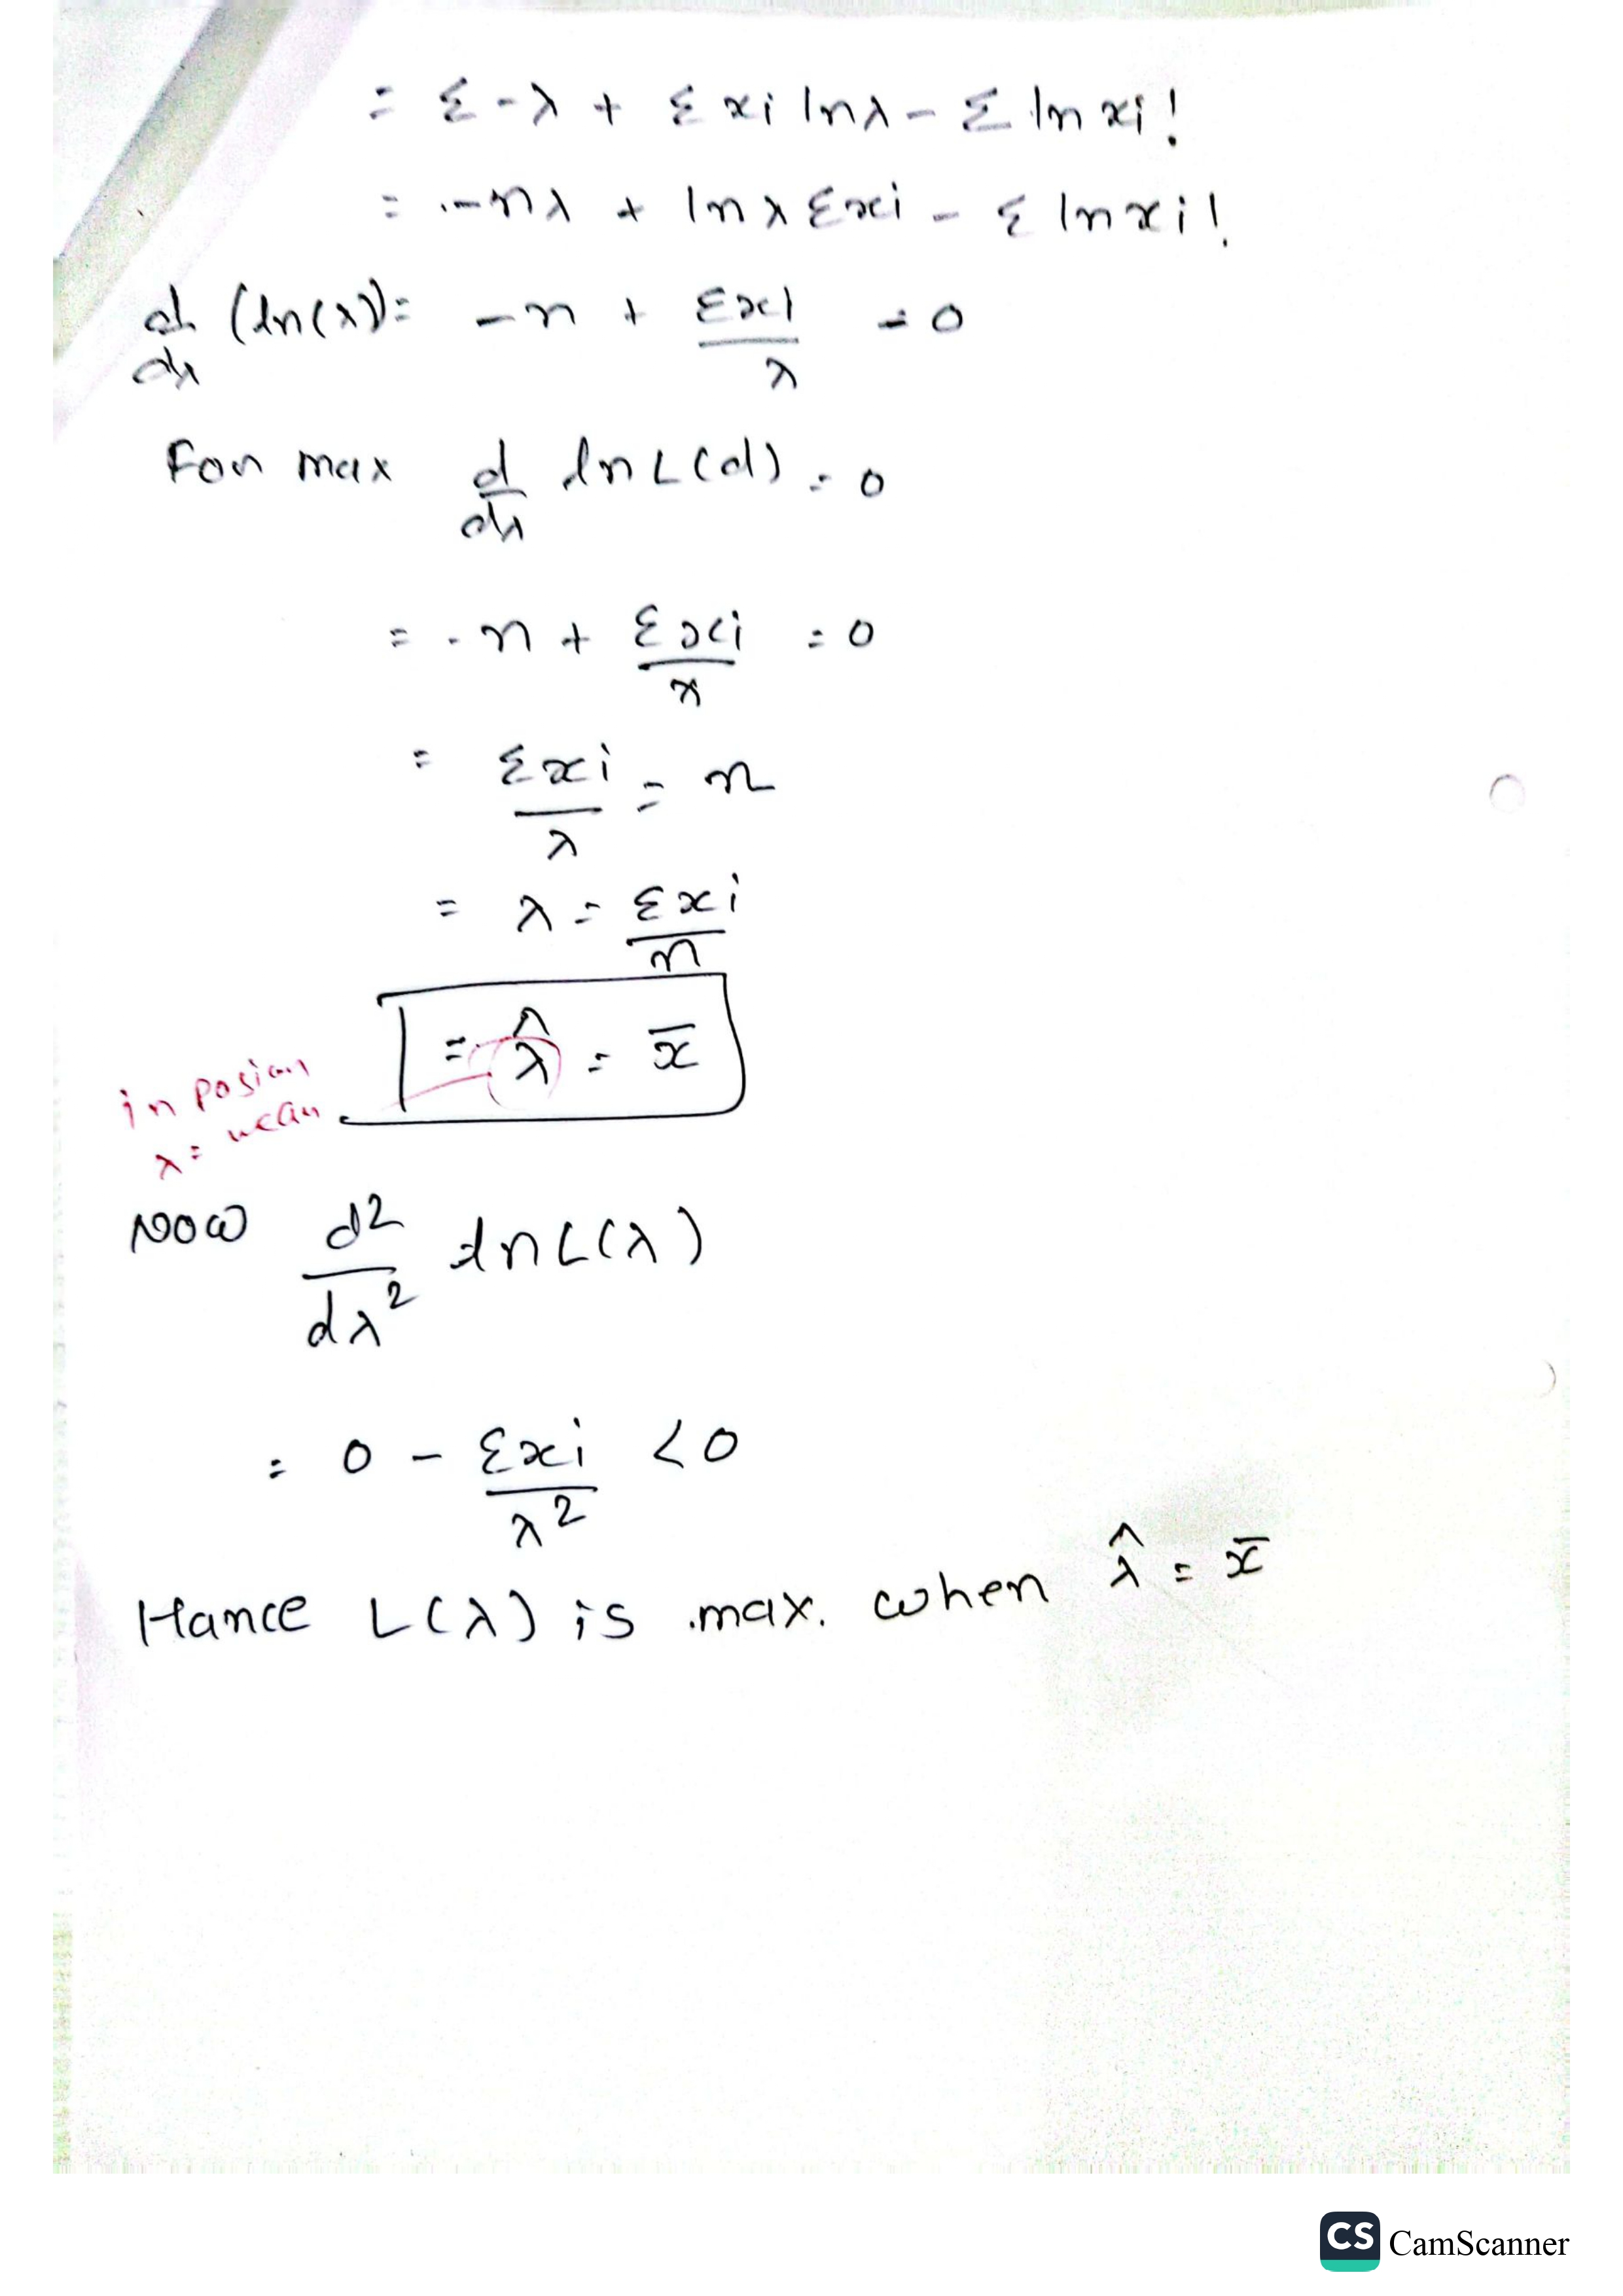 = Σ -λ + Σ xi lnλ - Σ ln xi!
= -nλ + lnλ Σxi - Σ ln xi!
d/dλ (ln(λ)) = -n + Σxi/λ = 0
For max d/dλ ln L(d) = 0
= -n + Σxi/λ = 0
= Σxi/λ = n
= λ = Σxi/n
= λ̂ = x̄
in posion
λ = mean
Now d²/dλ² ln L(λ)
= 0 - Σxi/λ² < 0
Hance L(λ) is max. when λ̂ = x̄
CS CamScanner